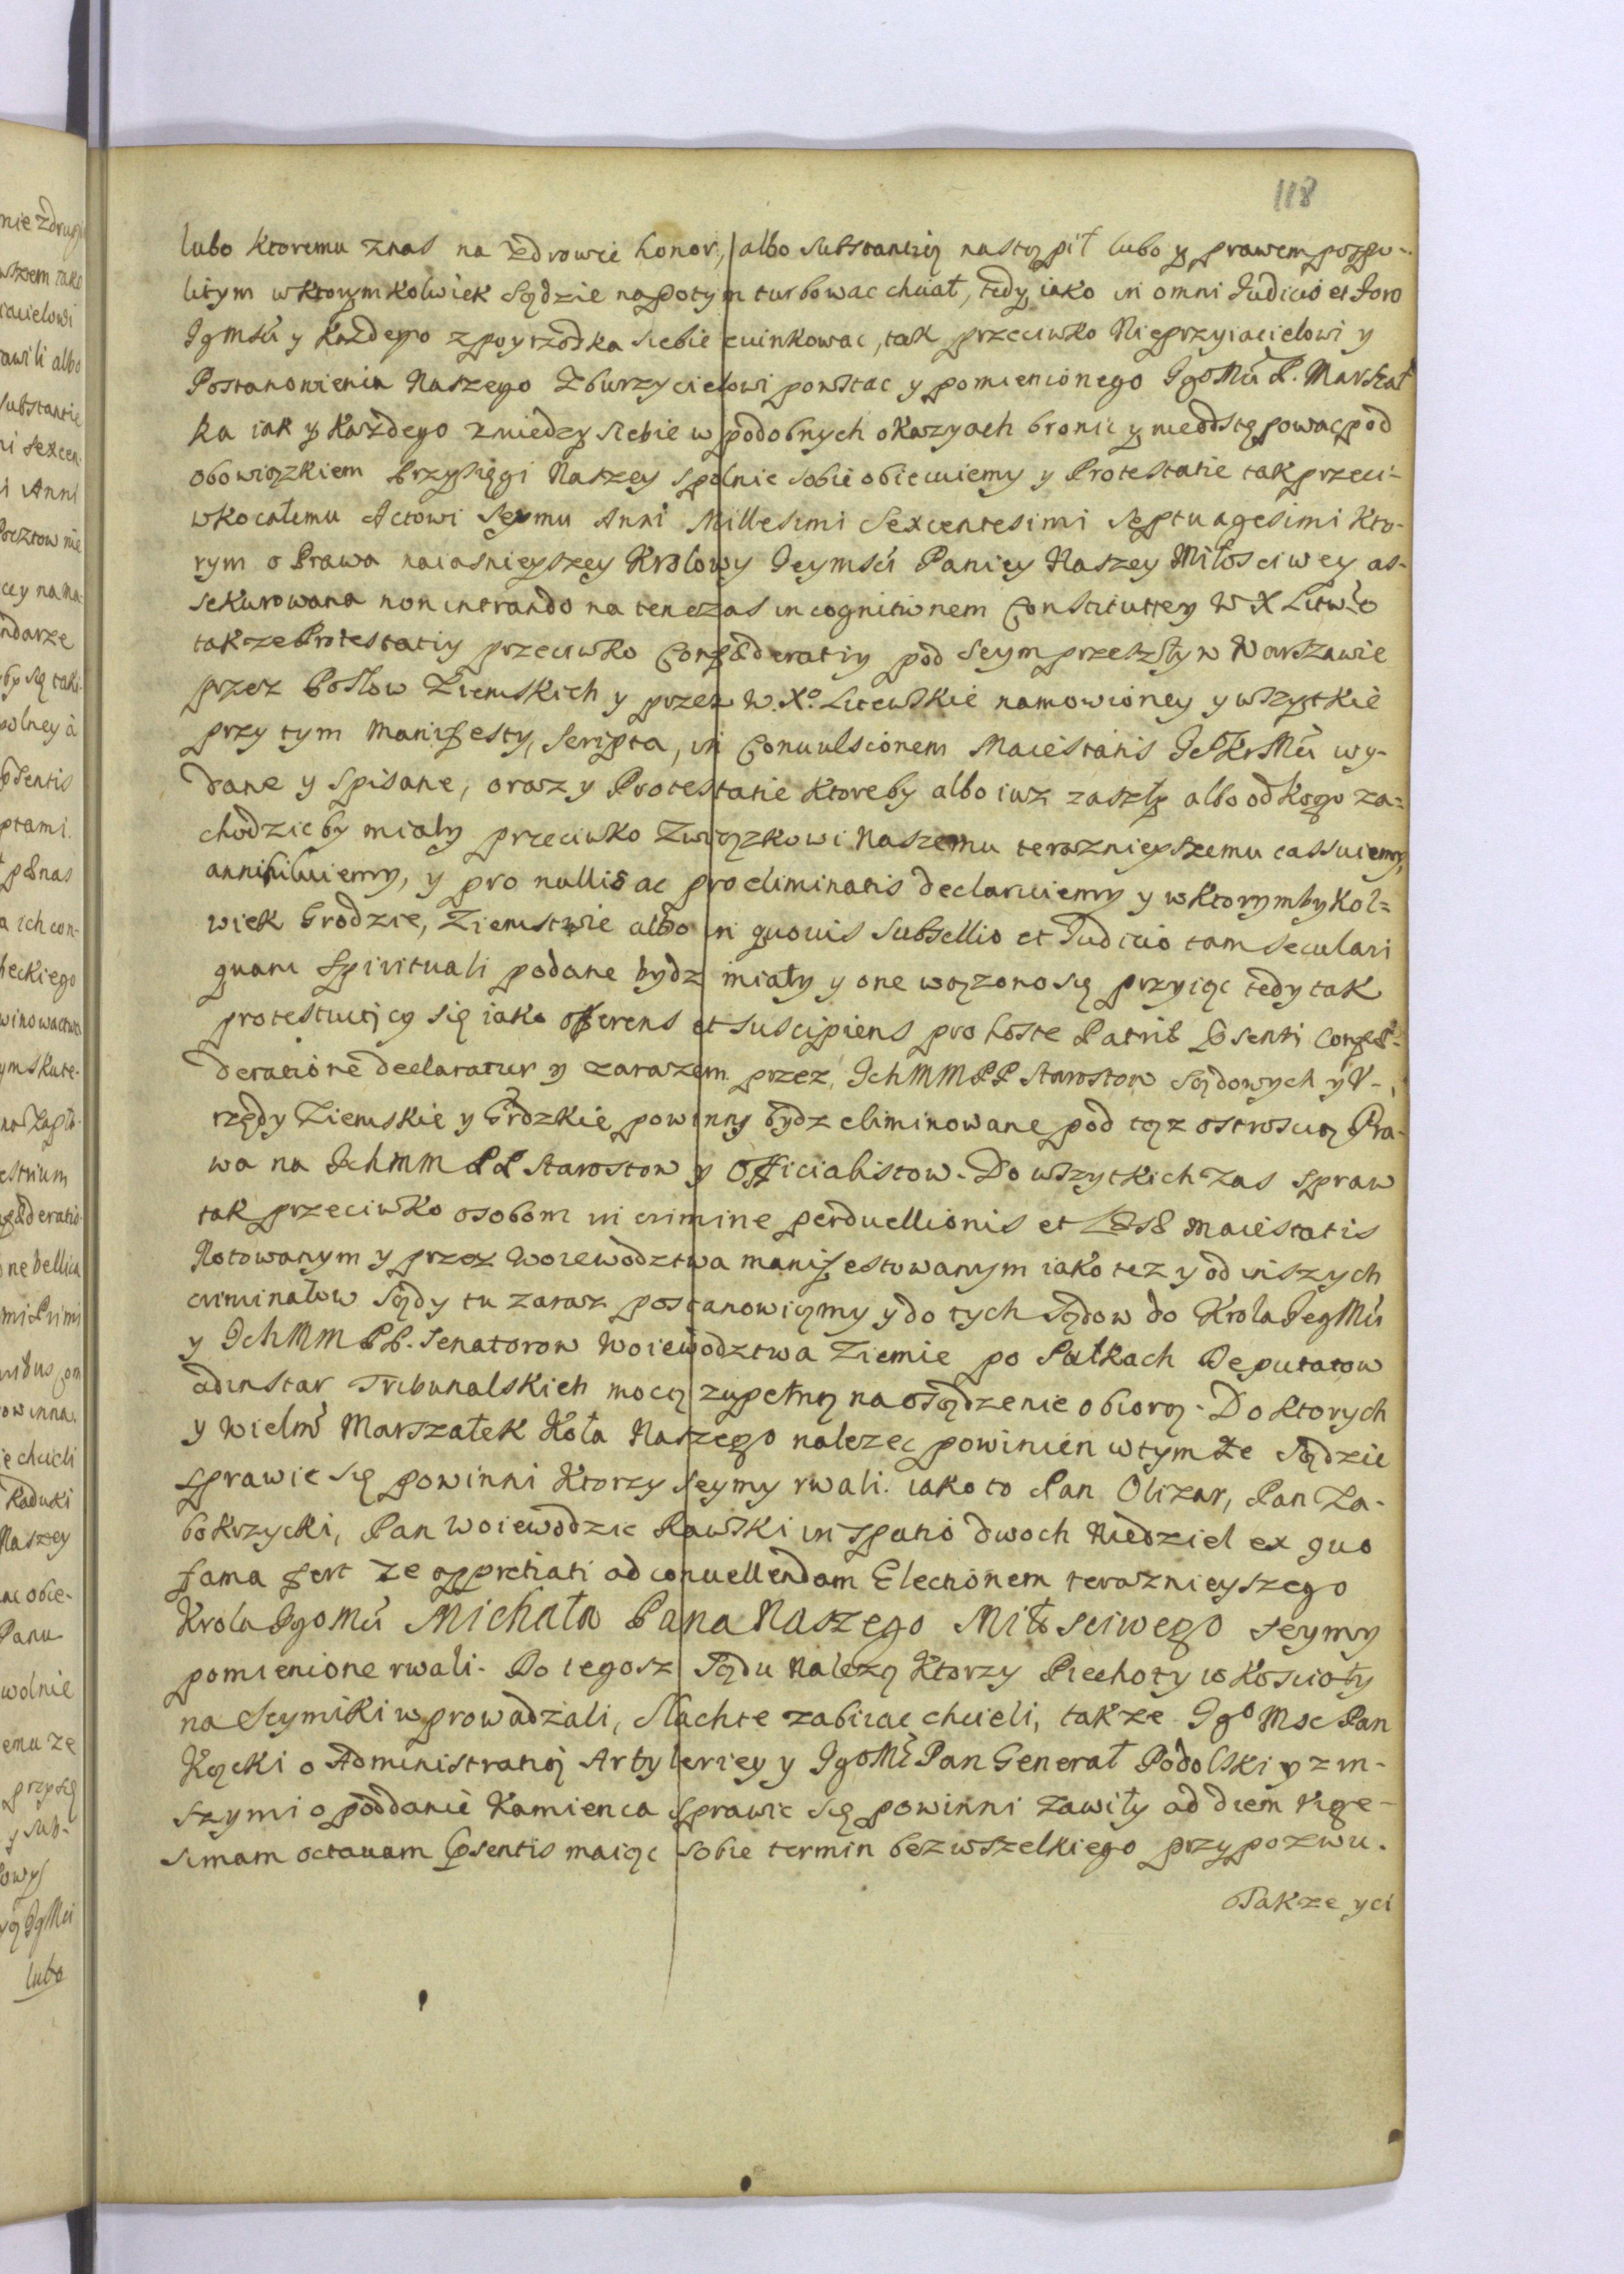 118
lubo ktoremu znas na zdrowie honor, albo substantią nastąpił lubo y prawem pospo-
litym wktorym kolwiek sądzie napotym turbowac chciał, tedy iako in omni Iudicio et Foro
Igmsći y każdego zpoyrzodka siebie ewinkowac, tak przeciwko Nieprzyiacielowi y
Postanowienia Naszego Zburzycielowi powstac y pomienionego IgoMći P. Marszał
ka iak y każdego zmiedzy siebie w podobnych okazyach bronic y nieodstępowac pod
obowiązkiem Przysięgi Naszey spolnie sobie obiecuiemy y Protestatie tak przeci-
wko całemu Actowi Seymu Anni Millesimi Sexcentesimi Septuagesimi kto-
rym o Prawa naiasnieyszey Krolowy Ieymsći Paniey Naszey Miłosciwey as-
sekurowana non intrando na tenczas in cognitionem Constitutiey W X Littwo
także Protestatiy przeciwko Confæderatiy pod Seym przeszły w Warszawie
przez Posłow Ziemskich y przez W. Xo. Litewskie namowioney y wszytkie
przy tym Manifesty, Scripta, in Convulsionem Maiestatis IeKrMći wy-
dane y Spisane, oraz y Protestatie ktoreby albo iuz zaszły albo od kogo za=
chodzic by miały przeciwko Związkowi Naszemu teraznieyszemu cassuiemy,
annihiluiemy, y pro nullis ac pro eliminatis declaruiemy y w ktorymby kol=
wiek Grodzie, Ziemstwie albo in quovis Subsellio et Iudicio tam seculari
quam Spirituali podane bydz miały y one ważono się przyiąc tedy tak
protestuiący się iako offerens et suscipiens pro hoste Patriæ Psenti Confæ-
deratione declaratur y zarazem przez IchMMPP Starostow Sądowych y V-
rzędy Ziemskie y Grodzkie powinny bydz eliminowane pod tąz ostroscią Pra-
wa na IchMM PP Starostow y Officialistow. Do wszytkich zas spraw
tak przeciwko osobom in crimine perduellionis et Læsæ Maiestatis
Notowanym y przez Woiewodztwa manifestowanym iako tez y od inszych
criminałow Sądy tu zaraz postanowiemy y do tych Sądow do Krola IegMći
y IchMM PP. Senatorow Woiewodztwa Ziemie po Pułkach Deputatow
adinstar Tribunalskich mocą zupełną na osądzenie obiorą. Do ktorych
y Wielm Marszałek Koła Naszego nalezec powinien w tymże Sądzie
sprawic się powinni ktorzy seymy rwali. iako to Pan Olizar, Pan Za-
bokrzycki, Pan Woiewodzic Rawski in spatio dwoch Niedziel ex quo
fama fert ze appretiati ad convellendam Electionem teraznieyszego
Krola IgoMći Michała Pana Naszego Miłosciwego seymy
pomienione rwali. Do tegosz Sądu należą ktorzy Piechoty w koscioły
na Seymiki wprowadzali, Slachte zabiiac chcieli, takze Igo Msc Pan
Kącki o Administratią Artyleriey y IgoMć Pan Generał Podolski y z in-
szymi o poddanie Kamienca sprawic się powinni zawiły ad diem vige-
simam octavam Psentis maiąc sobie termin bez wszelkiego przypozwu.
Takze yci